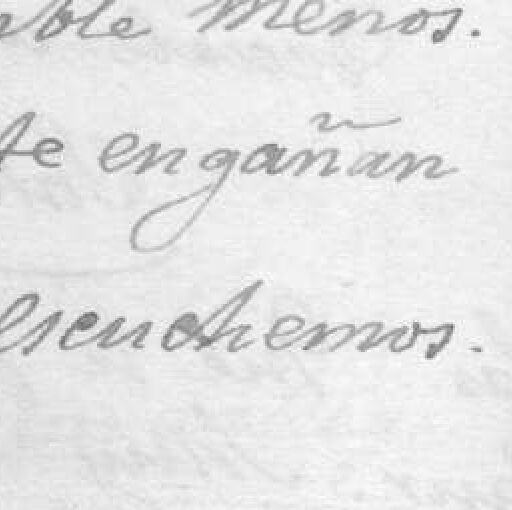 menos.
te engañan
escuchemos.